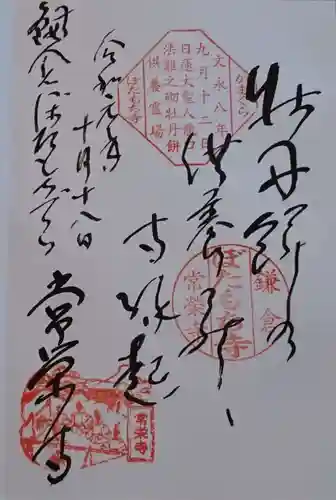 牡丹餅の
供養
文永八年
九月十二日
日蓮大聖人龍口
法難之砌牡丹餅
供養霊場
かまくら
ぼたもち寺
鎌倉
ぼたもち寺
常栄寺
令和元年
十月十八日
鎌倉ぼたもちでら
常栄寺
常栄寺